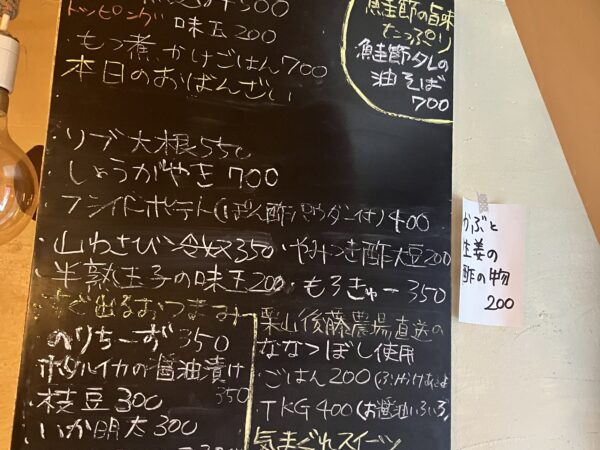 500
トッピング 味玉 200
・もつ煮かけごはん 700
本日のおばんざい
鮭節の旨味
たっぷり
鮭節タレの
油そば
700
・リブ大根 550
・しょうがやき 700
・フライドポテト(ぽん酢パウダー付) 400
・山わさび冷奴 350
・やみつき酢大豆 200
・半熟玉子の味玉 200
・もろきゅー 350
すぐ出るおつまみ
・のりちーず 350
・ホタルイカの醤油漬け
350
・枝豆 300
・いか明太 300
栗山後藤農場直送の
ななつぼし使用
・ごはん 200
・TKG 400 (お醤油いろいろ)
気まぐれスイーツ
かぶと
生姜の
酢の物
200